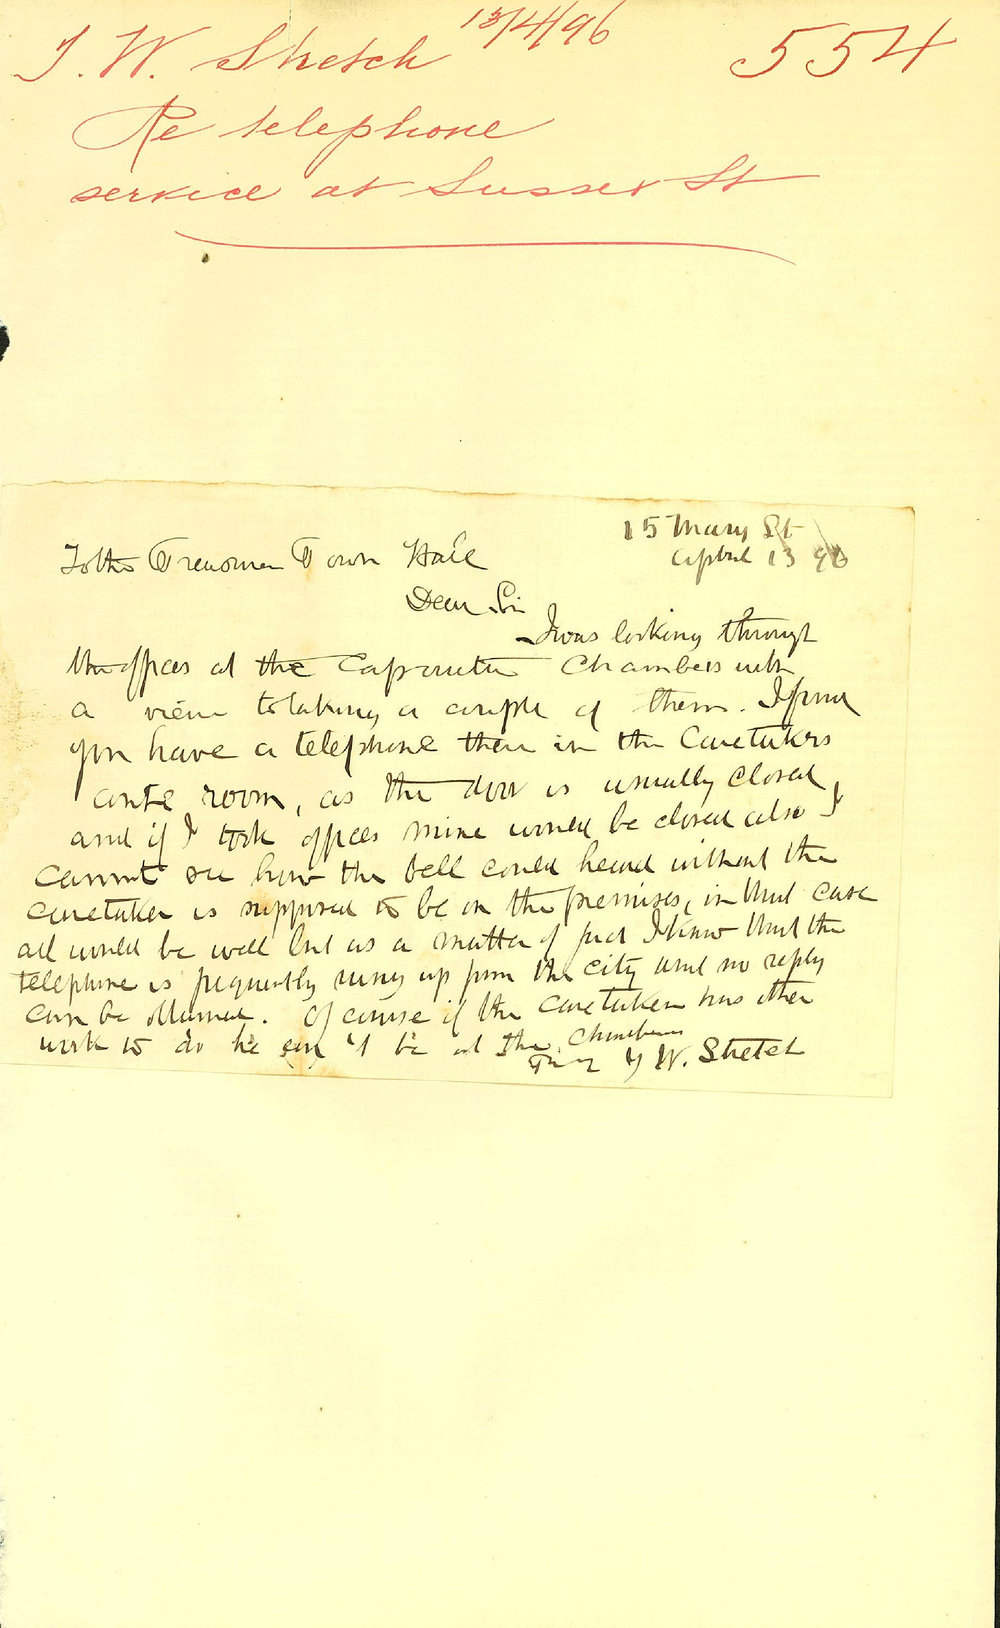 13/4/96
T. W. Stretch 554
Re telephone
service at Sussex St
15 Mary St
April 13 96
To the Treasurer Town Hall
Dear Sir
I was looking through
the offices at the Corporation Chambers with
a view to taking a couple of them. I find
you have a telephone there in the Caretakers
room, as the door is usually closed,
and if I took offices mine would be closed also I
cannot see how the bell could heard without the
caretaker is supposed to be on the premises, in that case
all would be well but as a matter of fact I know that the
telephone is frequently rung up from the city and no reply
can be obtained. Of course if the caretaker has other
work to do he can't be at the Chambers
T W. Stretch